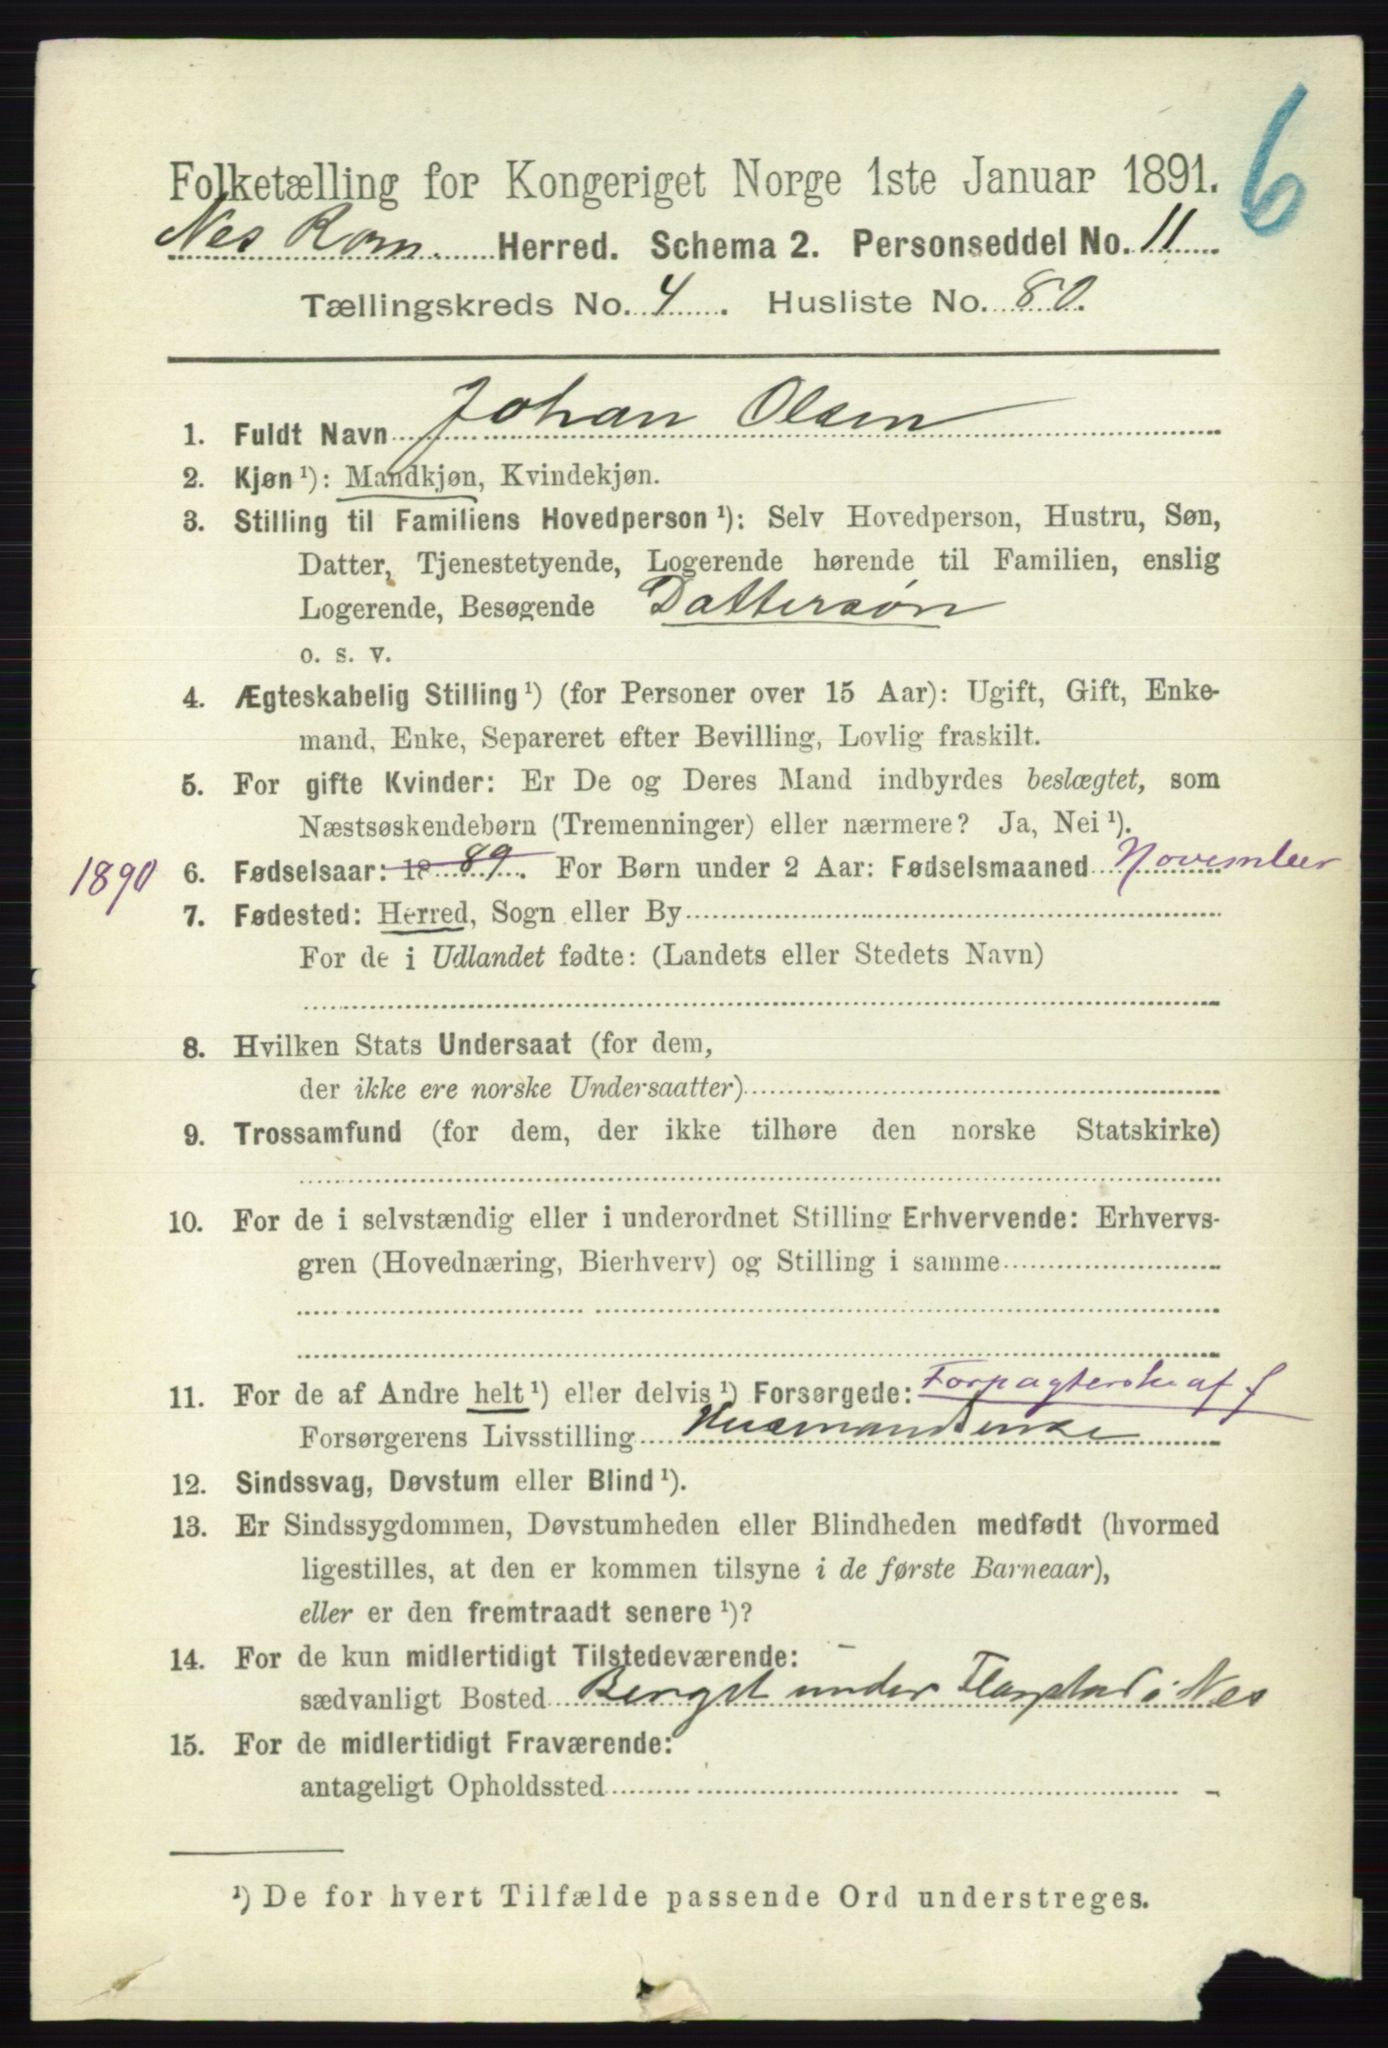 6
Folketælling for Kongeriget Norge 1ste Januar 1891.
Nes Rom. Herred. Schema 2. Personseddel No. 11
Tællingskreds No. 4. Husliste No. 80.
1. Fuldt Navn Johan Olsen
2. Kjøn ¹): Mandkjøn, Kvindekjøn.
3. Stilling til Familiens Hovedperson ¹): Selv Hovedperson, Hustru, Søn,
Datter, Tjenestetyende, Logerende hørende til Familien, enslig
Logerende, Besøgende Dattersøn
o. s. v.
4. Ægteskabelig Stilling ¹) (for Personer over 15 Aar): Ugift, Gift, Enke-
mand, Enke, Separeret efter Bevilling, Lovlig fraskilt.
5. For gifte Kvinder: Er De og Deres Mand indbyrdes beslægtet, som
Næstsøskendebørn (Tremenninger) eller nærmere? Ja, Nei ¹).
1890 6. Fødselsaar: 1889. For Børn under 2 Aar: Fødselsmaaned November
7. Fødested: Herred, Sogn eller By
For de i Udlandet fødte: (Landets eller Stedets Navn)
8. Hvilken Stats Undersaat (for dem,
der ikke ere norske Undersaatter)
9. Trossamfund (for dem, der ikke tilhøre den norske Statskirke)
10. For de i selvstændig eller i underordnet Stilling Erhvervende: Erhvervs-
gren (Hovednæring, Bierhverv) og Stilling i samme
11. For de af Andre helt ¹) eller delvis ¹) Forsørgede: Forpagterske af
Forsørgerens Livsstilling Husmandsenke
12. Sindssvag, Døvstum eller Blind ¹).
13. Er Sindssygdommen, Døvstumheden eller Blindheden medfødt (hvormed
ligestilles, at den er kommen tilsyne i de første Barneaar),
eller er den fremtraadt senere ¹)?
14. For de kun midlertidigt Tilstedeværende:
sædvanligt Bosted under i Nes
15. For de midlertidigt Fraværende:
antageligt Opholdssted
¹) De for hvert Tilfælde passende Ord understreges.